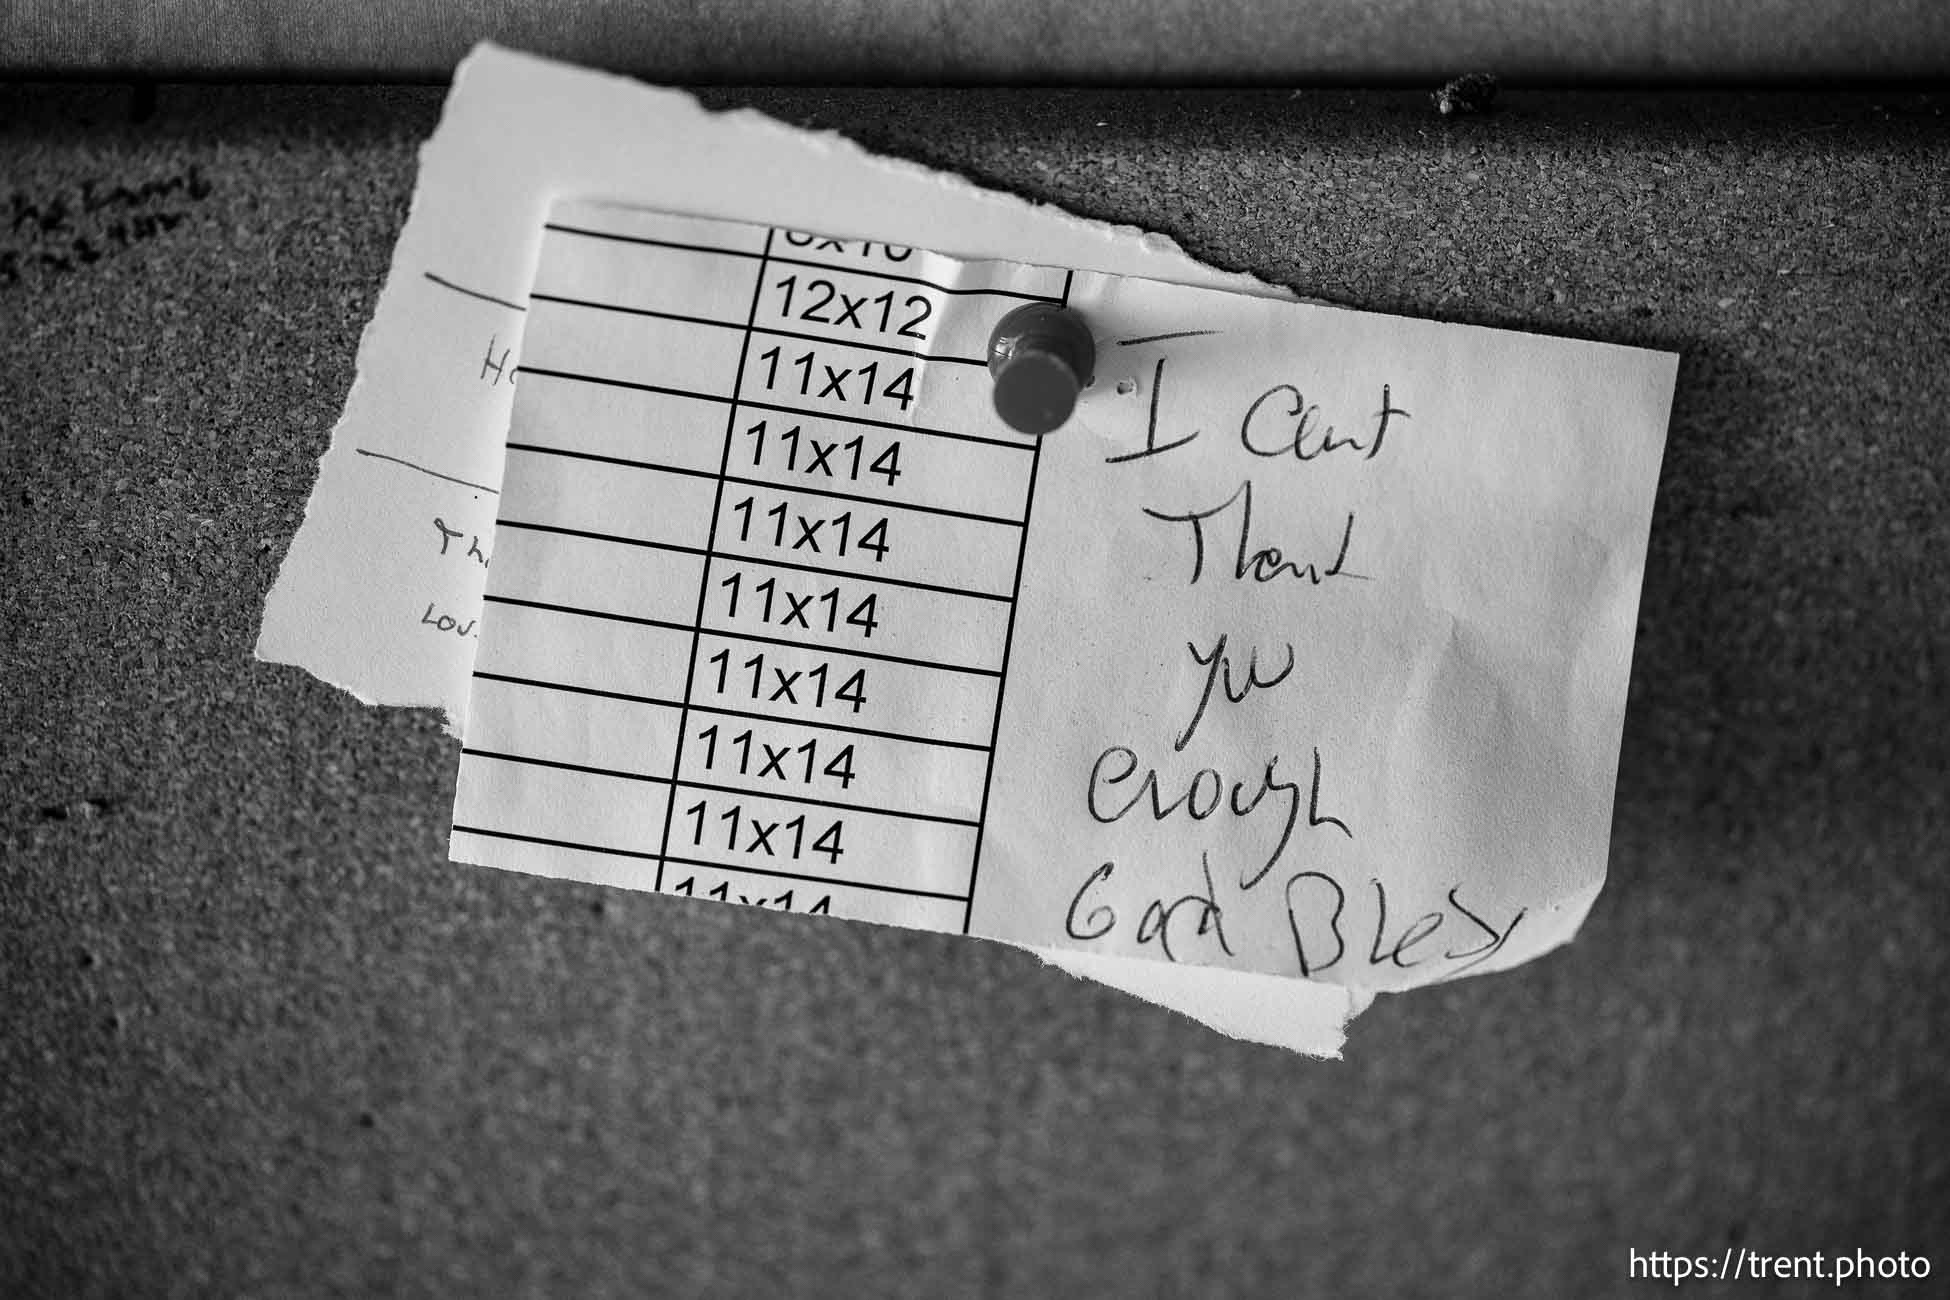 12x12
11x14
11x14
11x14
11x14
11x14
11x14
11x14
11x14
I Cant
Thank
you
enough
God Bless
Th
Lov
https://trent.photo